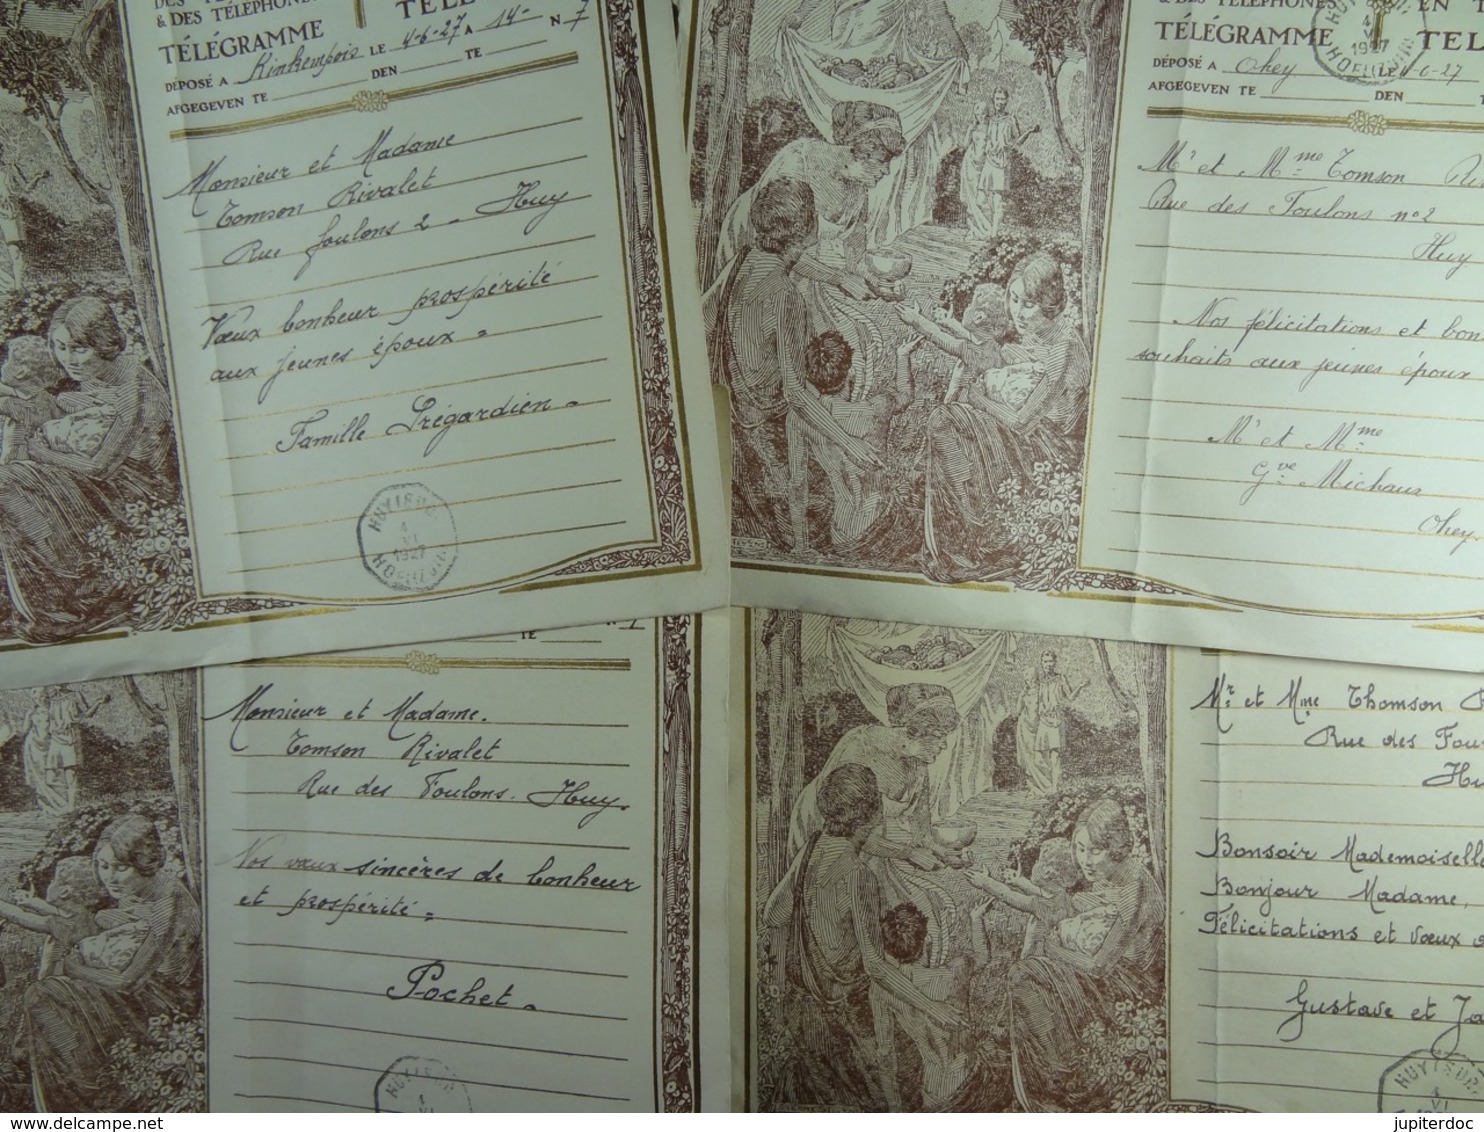 & DES TÉLÉPHONES
TÉLÉGRAMME
DÉPOSÉ A Kinkempois LE 4-6-27 A 14- N 7
AFGEGEVEN TE DEN TE
Monsieur et Madame
Tomson Rivalet
Rue foulons 2 - Huy
Vœux bonheur prospérité
aux jeunes époux =
Famille Prégardien -
HUY 1
4
VI
1927
HOEI
& DES TÉLÉPHONES
EN T
TÉLÉGRAMME
TEL
DÉPOSÉ A Ohey LE 4-6-27
AFGEGEVEN TE DEN T
HUY
1927
HOEI
Mr et Mme Tomson
Rue des Foulons n° 2
Huy
Nos félicitations et bon
souhaits aux jeunes époux
Mr et Mme
Gve Michaux
Ohey.
TE
Monsieur et Madame.
Tomson Rivalet
Rue des Foulons. Huy.
Nos vœux sincères de bonheur
et prospérité =
Pochet -
HUY
4
VI
Mr et Mme Thomson
Rue des Fou
Hu
Bonsoir Mademoisell
Bonjour Madame,
Félicitations et vœux
Gustave et Ja
HUY 1
4
VI
www.delcampe.net
jupiterdoc